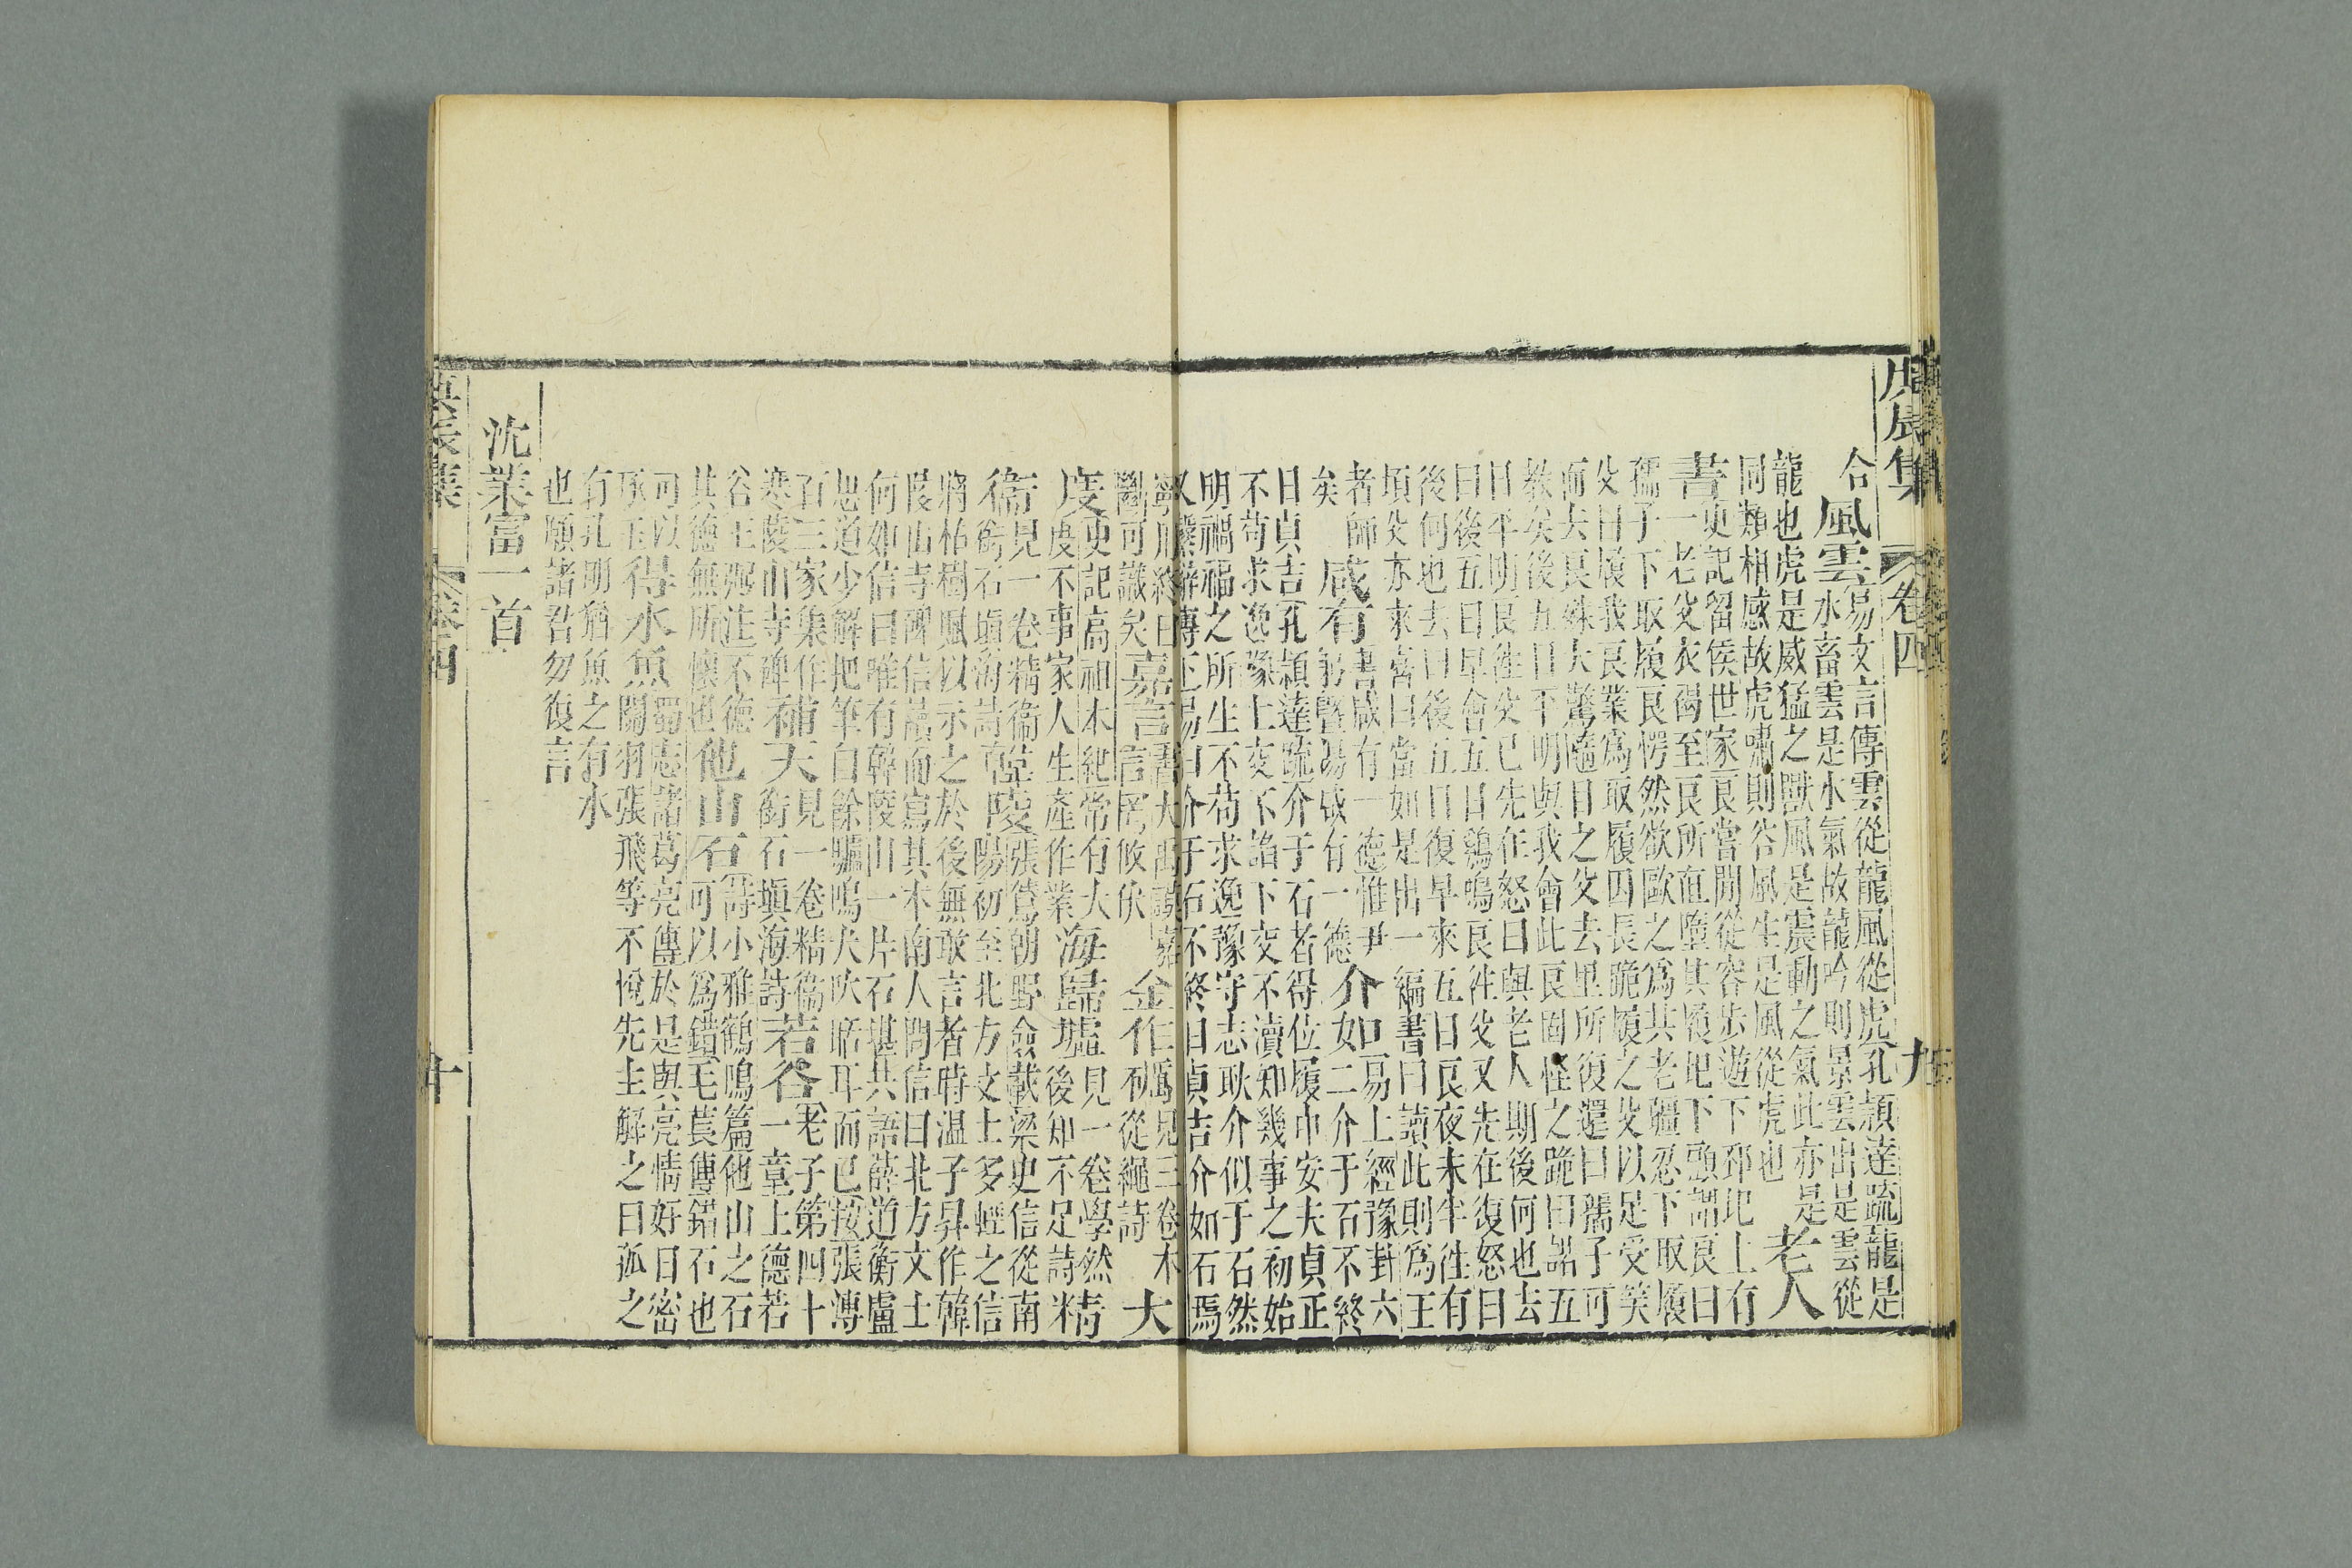 庚辰集 卷四 九
合風雲易文言傳雲從龍風從虎孔穎達疏龍是
水畜雲是水氣故龍吟則景雲出是雲從
龍也虎是威猛之獸風是震動之氣此亦是
同類相感故虎嘯則谷風生是風從虎也 老人
書史記留侯世家良嘗閒從容步遊下邳圯上有
一老父衣褐至良所直墮其履圯下顧謂良曰
孺子下取履良愕然欲毆之爲其老彊忍下取履
父曰履我良業爲取履因長跪履之父以足受笑
而去良殊大驚隨目之父去里所復還曰孺子可
教矣後五日平明與我會此良因怪之跪曰諾五
日平明良往父已先在怒曰與老人期後何也去
曰後五日早會五日鷄鳴良往父又先在復怒曰
後何也去曰後五日復早來五日良夜未半往有
頃父亦來喜曰當如是出一編書曰讀此則爲王
者師矣 咸有書咸有一德惟尹躬曁湯咸有一德 介如易上經豫卦六二介于石不終
日貞吉孔穎達疏介于石者得位履中安夫貞正
不苟求逸豫上交不諂下交不瀆知幾事之初始
明禍福之所生不苟求逸豫守志耿介似于石然
又繫辭傳下易曰介于石不終日貞吉介如石焉
寧用終日斷可識矣 嘉言書大禹謨嘉言罔攸伏 金作礪見三卷木從繩詩 大
度史記高祖本紀常有大度不事家人生產作業 海歸墟見一卷學然後知不足詩 精
衛見一卷精衛銜石塡海詩 韓陵張鷟朝野僉載梁庾信從南朝初至北方文士多輕之信
將枯樹賦以示之於後無敢言者時溫子昇作韓
陵山寺碑信讀而寫其本南人問信曰北方文士
何如信曰唯有韓陵山一片石堪共語薛道衡盧
思道少解把筆自餘驢鳴犬吠聒耳而已按張溥
百三家集作寒陵山寺碑 補天見一卷精衛銜石塡海詩 若谷老子第四十一章上德若
谷王弼注不德其德無所懷也 他山石詩小雅鶴鳴篇他山之石可以爲錯毛萇傳錯石也
可以琢玉 得水魚蜀志諸葛亮傳於是與亮情好日密關羽張飛等不悅先主解之曰孤之
有孔明猶魚之有水
也願諸君勿復言
沈業富一首
庚辰集 卷四 十